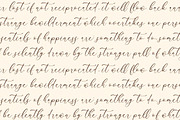 lost if not reciprocated it will flow back and
strange bewilderment which overtakes one person
essentials of happiness are something to do som
be silently drawn by the stranger pull of what
lost if not reciprocated it will flow back and
strange bewilderment which overtakes one person
essentials of happiness are something to do som
be silently drawn by the stranger pull of what